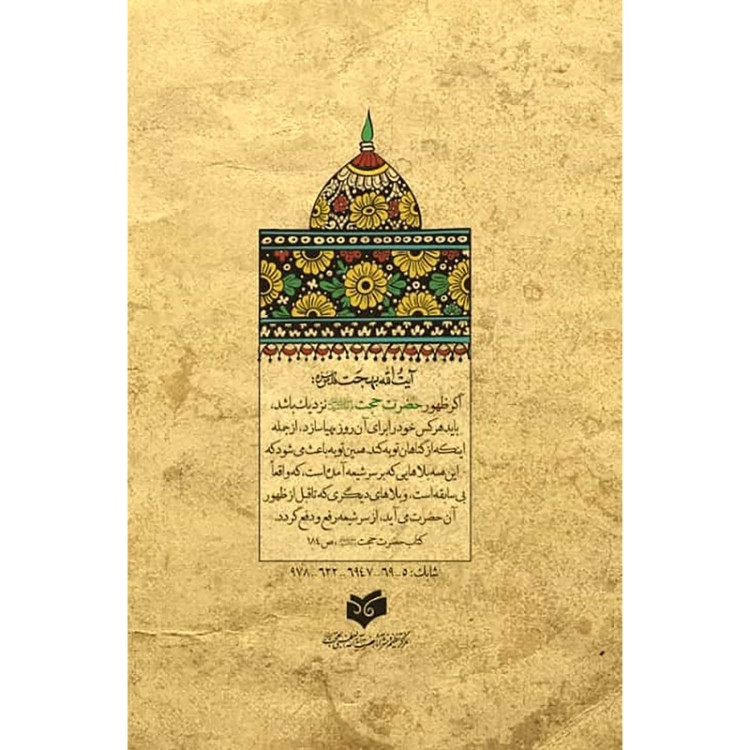 آیت‌الله بهجت قدس‌سره:
اگر ظهور حضرت حجت نزدیک باشد،
باید هر کس خود را برای آن روز مهیا سازد، از جمله
اینکه از گناهان توبه کند. همین توبه باعث می‌شود که
این همه بلاهایی که بر سر شیعه آمده است، که واقعاً
بی‌سابقه است، و بلاهای دیگری که تا قبل از ظهور
آن حضرت می‌آید، از سر شیعه رفع و دفع گردد.
کتاب حضرت حجت، ص۱۸۴
شابک: ۵-۶۹-۶۹۴۷-۶۲۲-۹۷۸